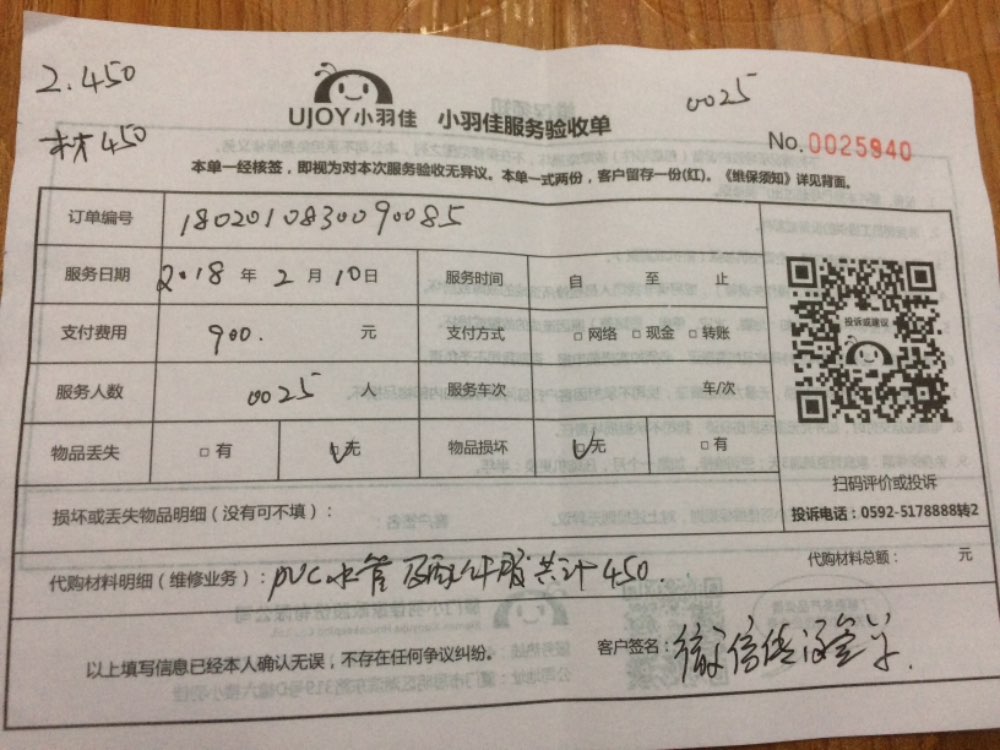 2.450
材450
0025
UJOY小羽佳 小羽佳服务验收单
No.0025940
本单一经核签，即视为对本次服务验收无异议。本单一式两份，客户留存一份(红)。《维保须知》详见背面。
订单编号 1802010830090085
服务日期 2018 年 2 月 10 日 服务时间 自 至 止
支付费用 900. 元 支付方式 □ 网络 □ 现金 □ 转账
服务人数 0025 人 服务车次 车/次
物品丢失 □ 有 无 物品损坏 无 □ 有
投诉或建议
扫码评价或投诉
投诉电话：0592-5178888转2
损坏或丢失物品明细（没有可不填）：
代购材料明细（维修业务）：PVC水管及配件胶共计450.
代购材料总额： 元
以上填写信息已经本人确认无误，不存在任何争议纠纷。
客户签名：微信